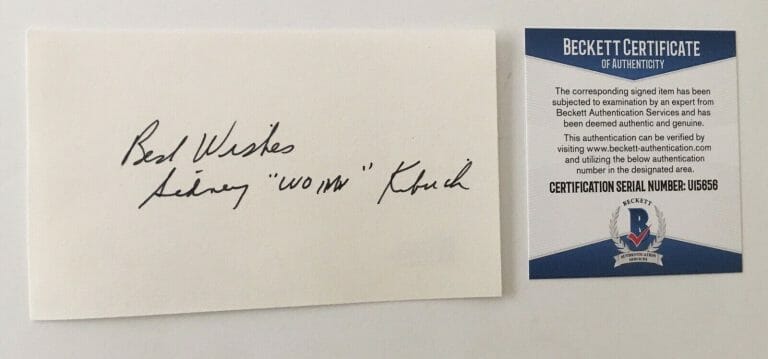 Best Wishes
Sidney
BECKETT CERTIFICATE
OF AUTHENTICITY
The corresponding signed item has been
subjected to examination by an expert from
Beckett Authentication Services and has
been deemed authentic and genuine.
This authentication can be verified by
visiting www.beckett-authentication.com
and utilizing the below authentication
number in the designated area.
CERTIFICATION SERIAL NUMBER: U15656
BECKETT
B
AUTHENTICATION
SERVICES